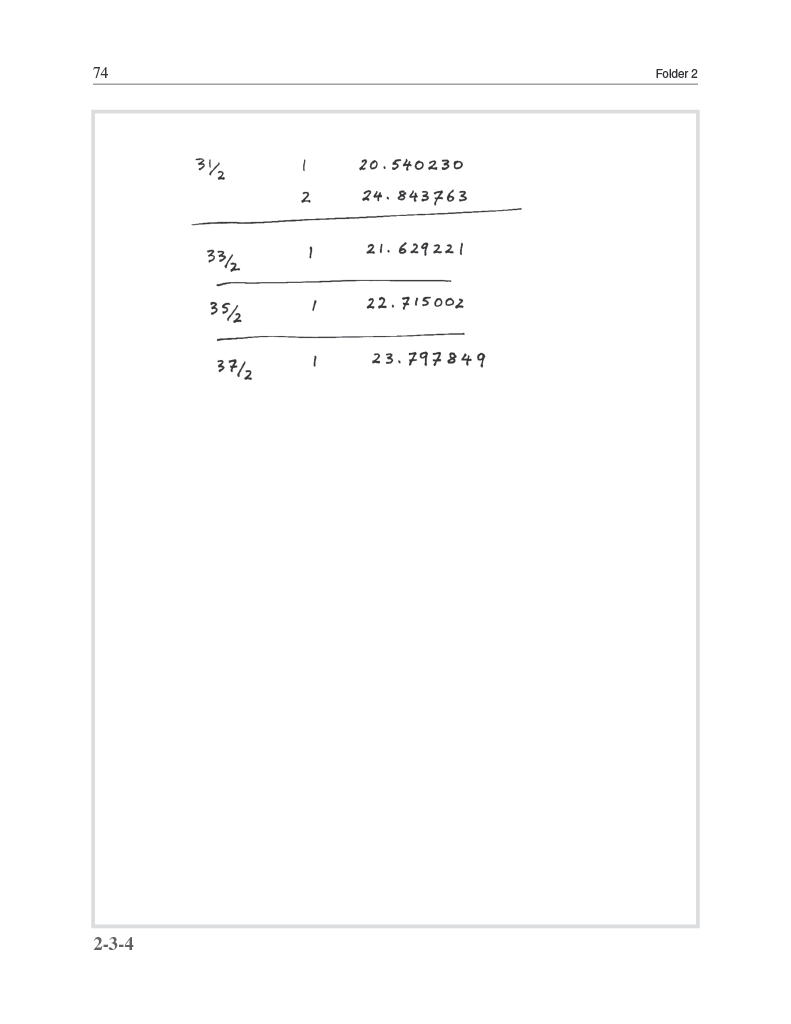 74 Folder 2
31/2 1 20.540230
2 24.843763
33/2 1 21.629221
35/2 1 22.715002
37/2 1 23.797849
2-3-4